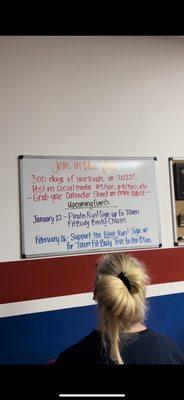 Join in the fun
300 days of workouts in 2022!
Post on social media #3/300, #4/300, etc.
- Grab your Calendar Sheet on front table -
Upcoming Events
January 22 - Pirate Run! Sign up to Team
FitBody Booty Chasers
February 26 - Support the Blue Run! Sign up
for Team FitBody True to the Blue